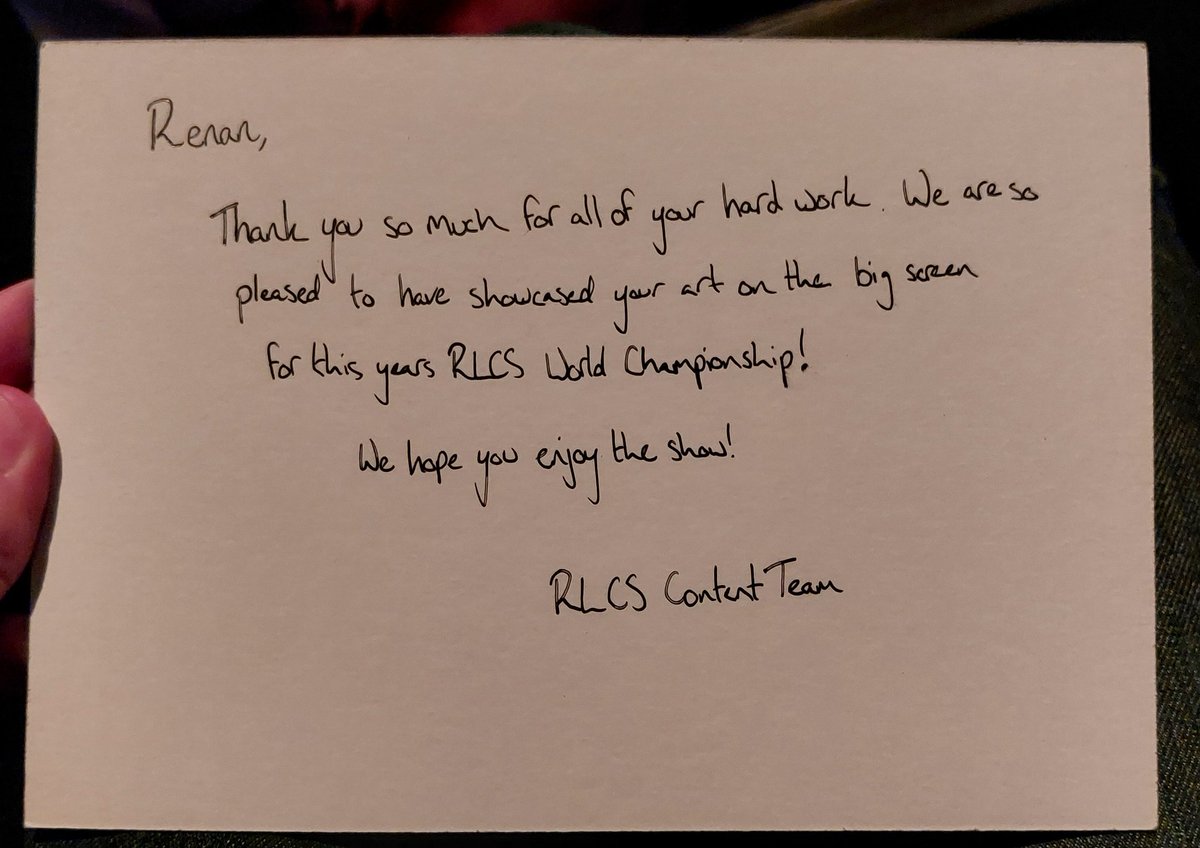 Renan,
Thank you so much for all of your hard work. We are so
pleased to have showcased your art on the big screen
for this years RLCS World Championship!
We hope you enjoy the show!
RLCS Content Team